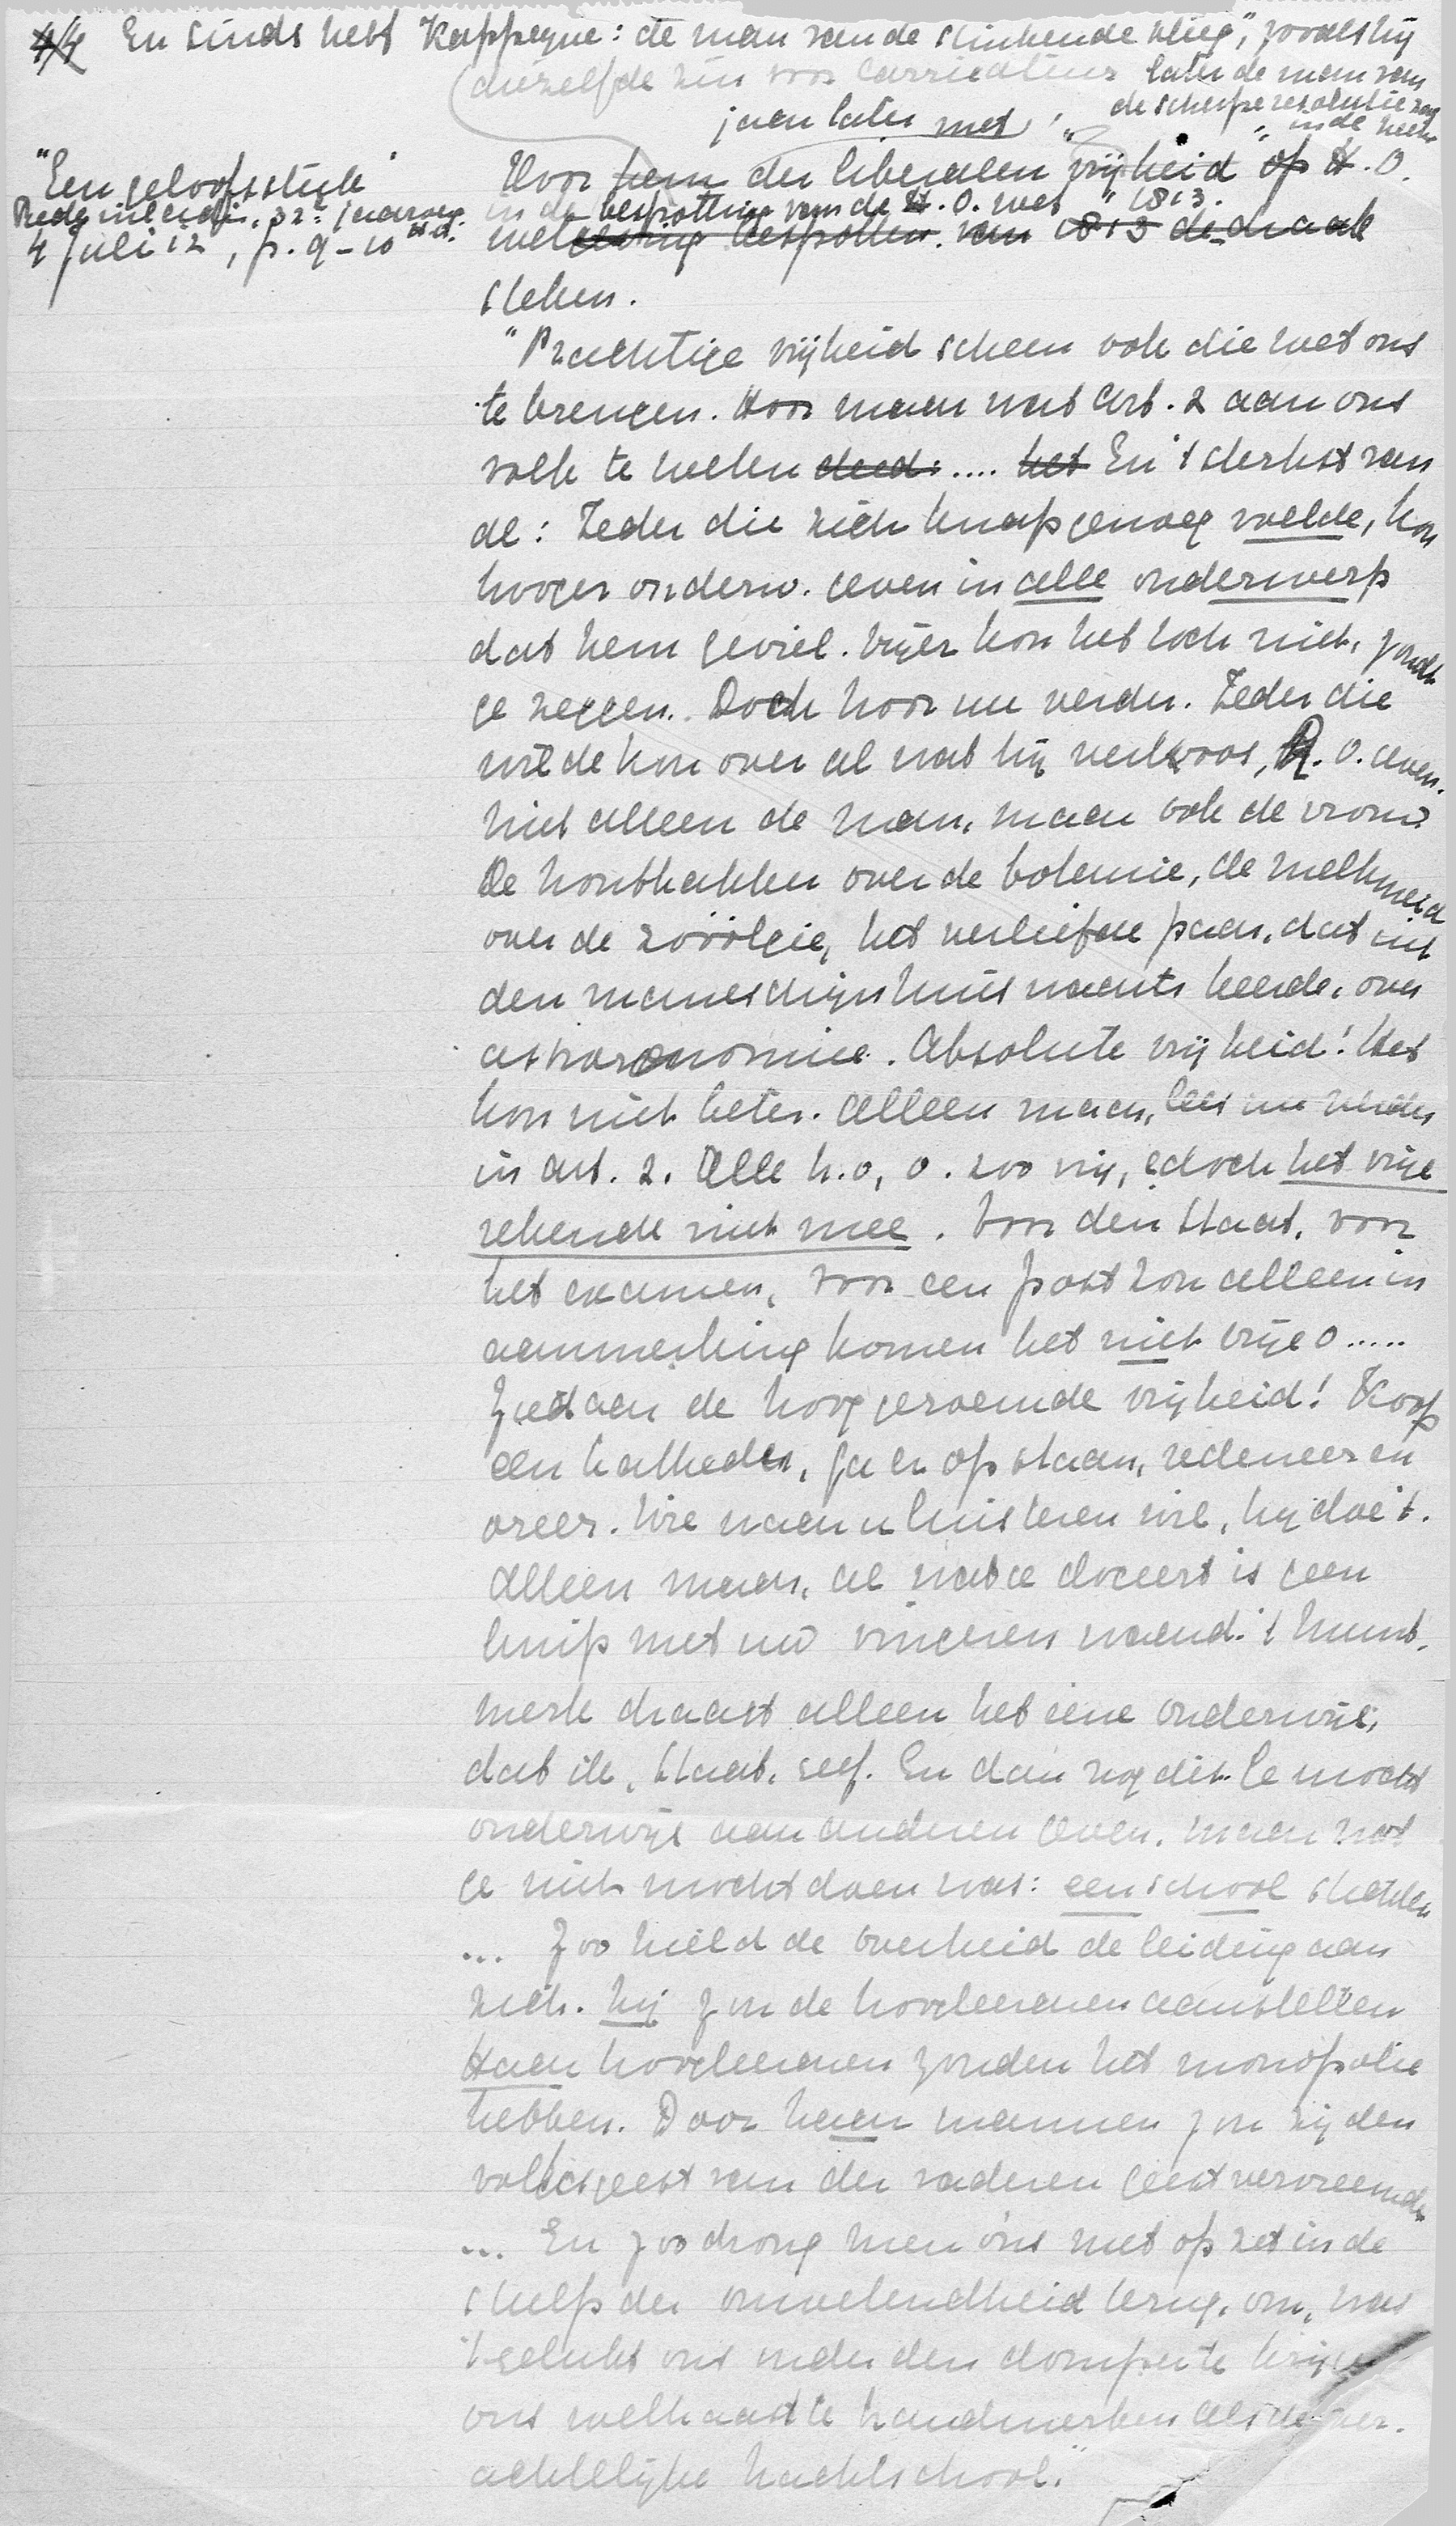 44 En sinds hebt Kappeyne: de man van de stinkende vlieg", zooals hij
(diezelfde zin voor carricatuur later de man van
de scherpe resolutie van
jaren later met " " in de
"Een geloofsstuk"
Voor hem der liberalen vrijheid op H. O.
Rede 32e jaarverg. in de bespotting van de H. O. wet " 1813.
4 Juli 12, p. 9-10 met bespotten van 1813 de draak
steken.
"Prachtige vrijheid scheen ook die wet ons
te brengen. Hoor maar wat Art. 2 aan ons
volk te weten deed: .... het En 't sterkst van
al: Ieder die zich knap genoeg voelde, kon
hooger onderw. geven in alle onderwerp
dat hem geviel. Vrijer kon het toch niet, zoudt
ge zeggen. Doch hoor nu verder. Ieder die
wilde kon over al wat hij verkoos, H. O. geven.
Niet alleen de man, maar ook de vrouw.
De houthakker over de botanie, de melkmeid
over de zoölogie, het verliefde paar, dat uit
den maneschijn huiswaarts keerde, over
astronomie. Absolute vrijheid! Het
kon niet beter. Alleen maar, lees nu verder
in art. 2. Alle h.o. o. zoo vrij, edoch het vrije
rekende niet mee. Voor den Staat, voor
het examen, voor een post zou alleen in
aanmerking komen het niet vrije o.....
Ziedaar de hooggeroemde vrijheid! Koop
een katheder, ga er op staan, redeneer en
oreer. Wie naar u luisteren wil, hij doe 't.
Alleen maar, al wat ge doceert is geen
knip met uw vingeren waard. 't Munt-
merk draagt alleen het eene onderwijs,
dat ik, Staat, geef. En dan nog dit. Ge mocht
onderwijs aan anderen geven, maar wat
ge niet mocht doen was: een school stichten
... Zoo hield de overheid de leiding aan
zich. Hij zou de hoogleeraren aanstellen
Haar hoogleeraren zouden het monopolie
hebben. Door haar mannen zou zij den
volksgeest van der vaderen geest vervreemden
... En zoo drong men óns met opzet in de
schelp der onwetendheid terug, om, was
't gelukt ons onder den domper te krijgen
ons welhaast te brandmerken als de ver-
achtelijke nachtschool."